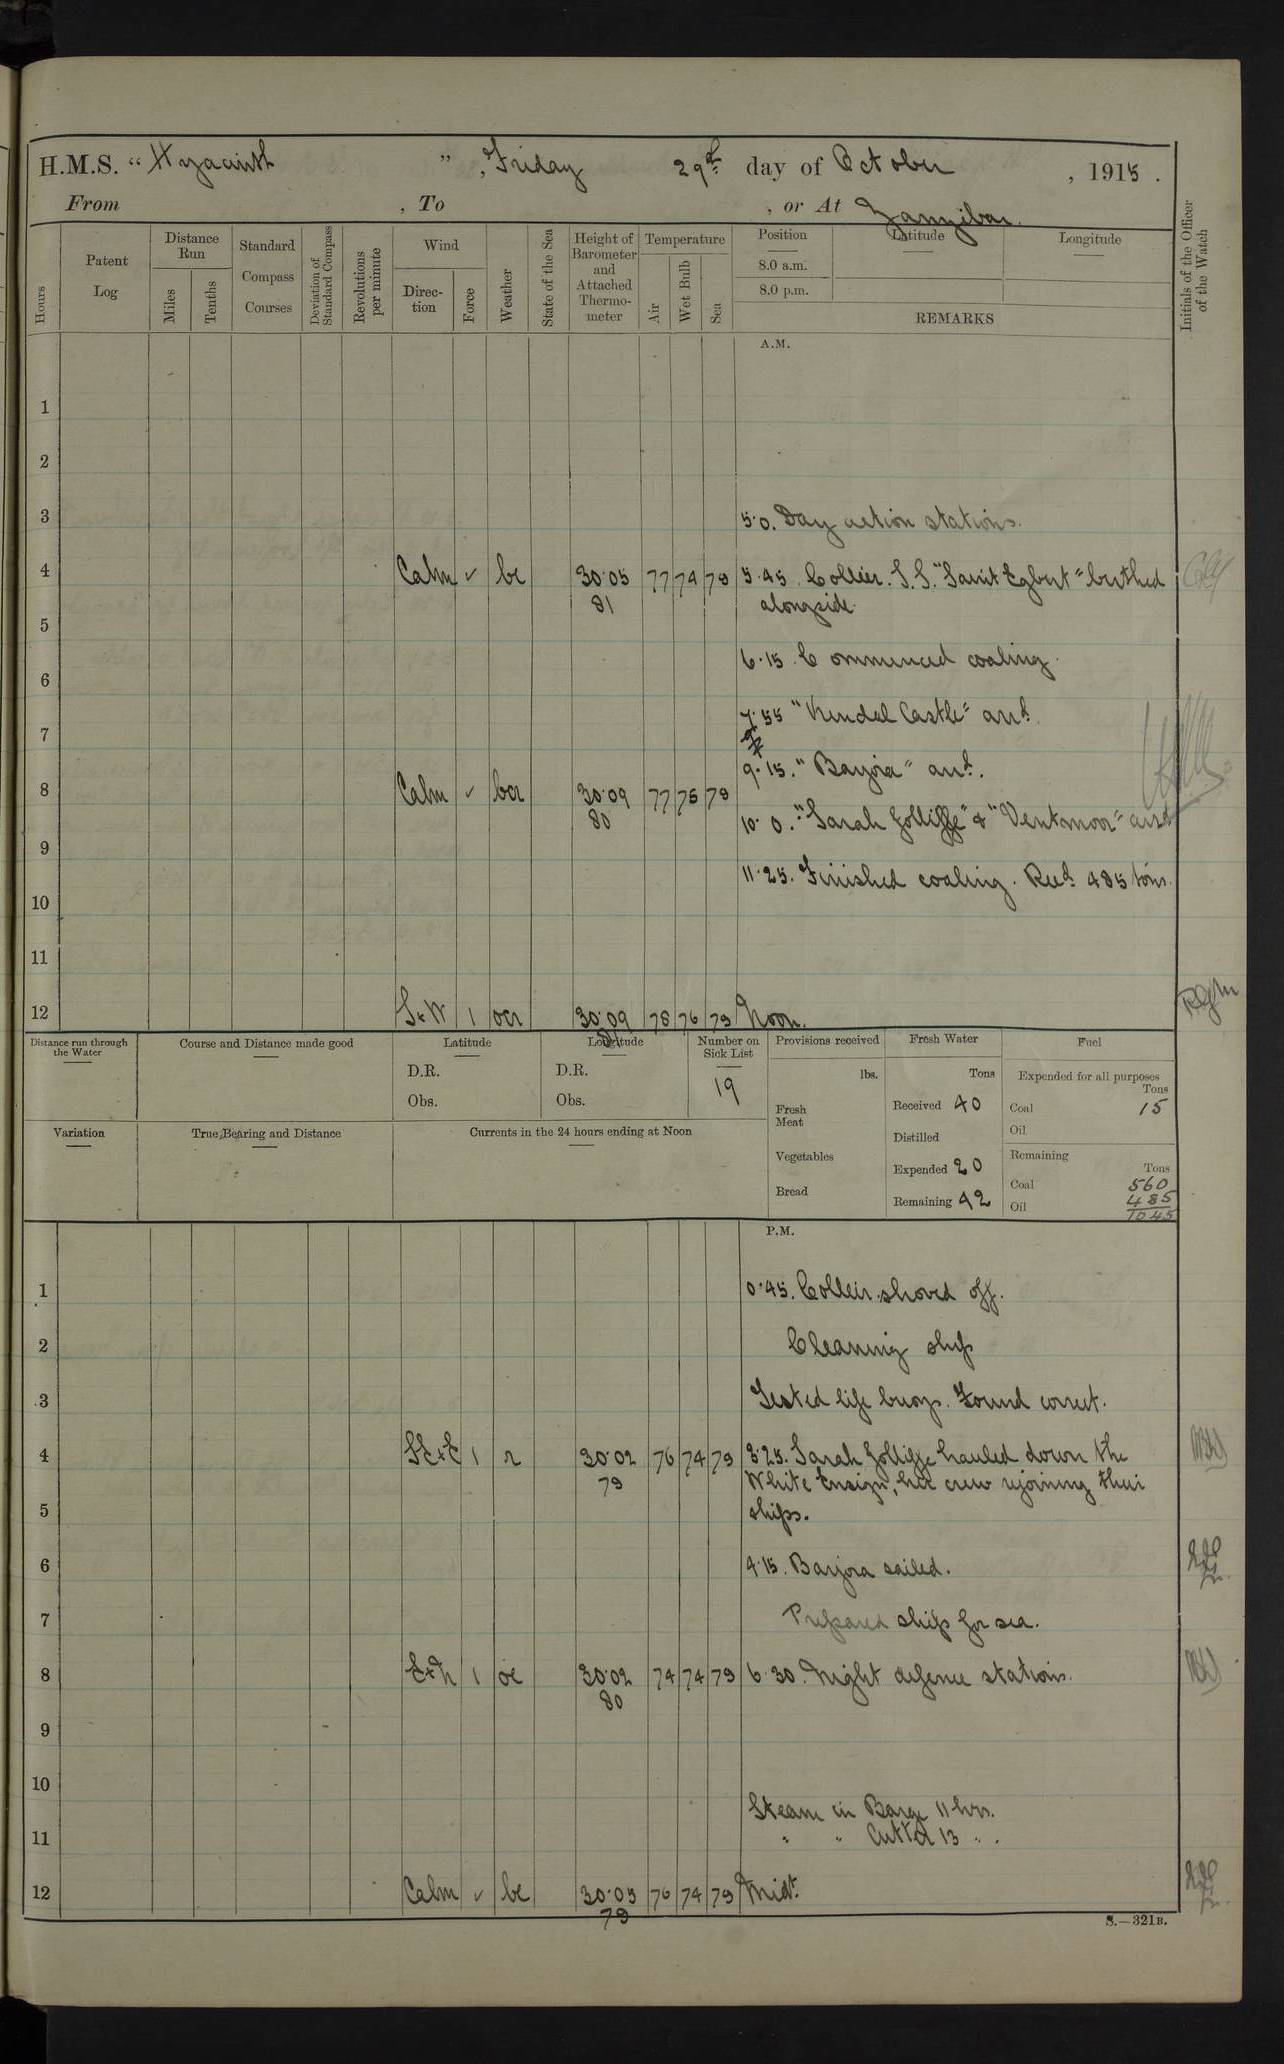 H.M.S. "Hyacinth", Friday 29th day of October, 1915.
From , To , or At Zanzibar.
Hours
Patent Log
Distance Run
Miles
Tenths
Standard Compass Courses
Deviation of Standard Compass
Revolutions per minute
Wind
Direction
Force
Weather
State of the Sea
Height of Barometer and Attached Thermometer
Temperature
Air
Wet Bulb
Sea
Position
8.0 a.m.
8.0 p.m.
Latitude
Longitude
REMARKS
Initials of the Officer of the Watch
A.M.
1
2
3
5.0. Day action stations.
4 Calm ✓ bc 30.05 77 74 79 5.45. Collier. S.S. "Saint Egbert" berthed
81 alongside.
5
6.15. Commenced coaling.
6
7.55 "Kendal Castle" arrd.
7
9.15. "Barjora" arrd.
8 Calm ✓ bcr 30.09 77 75 79
80
10.0. "Sarah Jolliffe" & "Ventmoor" arrd
9
11.25. Finished coaling. Recd. 485 tons.
10
11
12 SxW 1 ocr 30.09 78 76 79 Noon.
Distance run through the Water
Course and Distance made good
Latitude
D.R.
Obs.
Longitude
D.R.
Obs.
Number on Sick List
19
Provisions received
lbs.
Fresh Meat
Vegetables
Bread
Fresh Water
Tons
Received 40
Distilled
Expended 20
Remaining 42
Fuel
Expended for all purposes
Tons
Coal 15
Oil
Remaining
Tons
Coal 560
485
Oil 1045
Variation
True Bearing and Distance
Currents in the 24 hours ending at Noon
P.M.
1 0.45. Collier shoved off.
2 Cleaning ship
3 Tested life buoys. Found correct.
4 SExE 1 r 30.02 76 74 79 3.25. Sarah Jolliffe hauled down the
79 White Ensign, her crew rejoining their
5 ships.
6 4.15. Barjora sailed.
7 Prepared ship for sea.
8 ExN 1 oc 30.02 74 74 79 6.30. Night defence stations.
80
9
10
Steam in Barge 11 hrs.
11 " " Cutter 13 " .
12 Calm ✓ bc 30.03 76 74 79 Midt.
79
S.—321B.